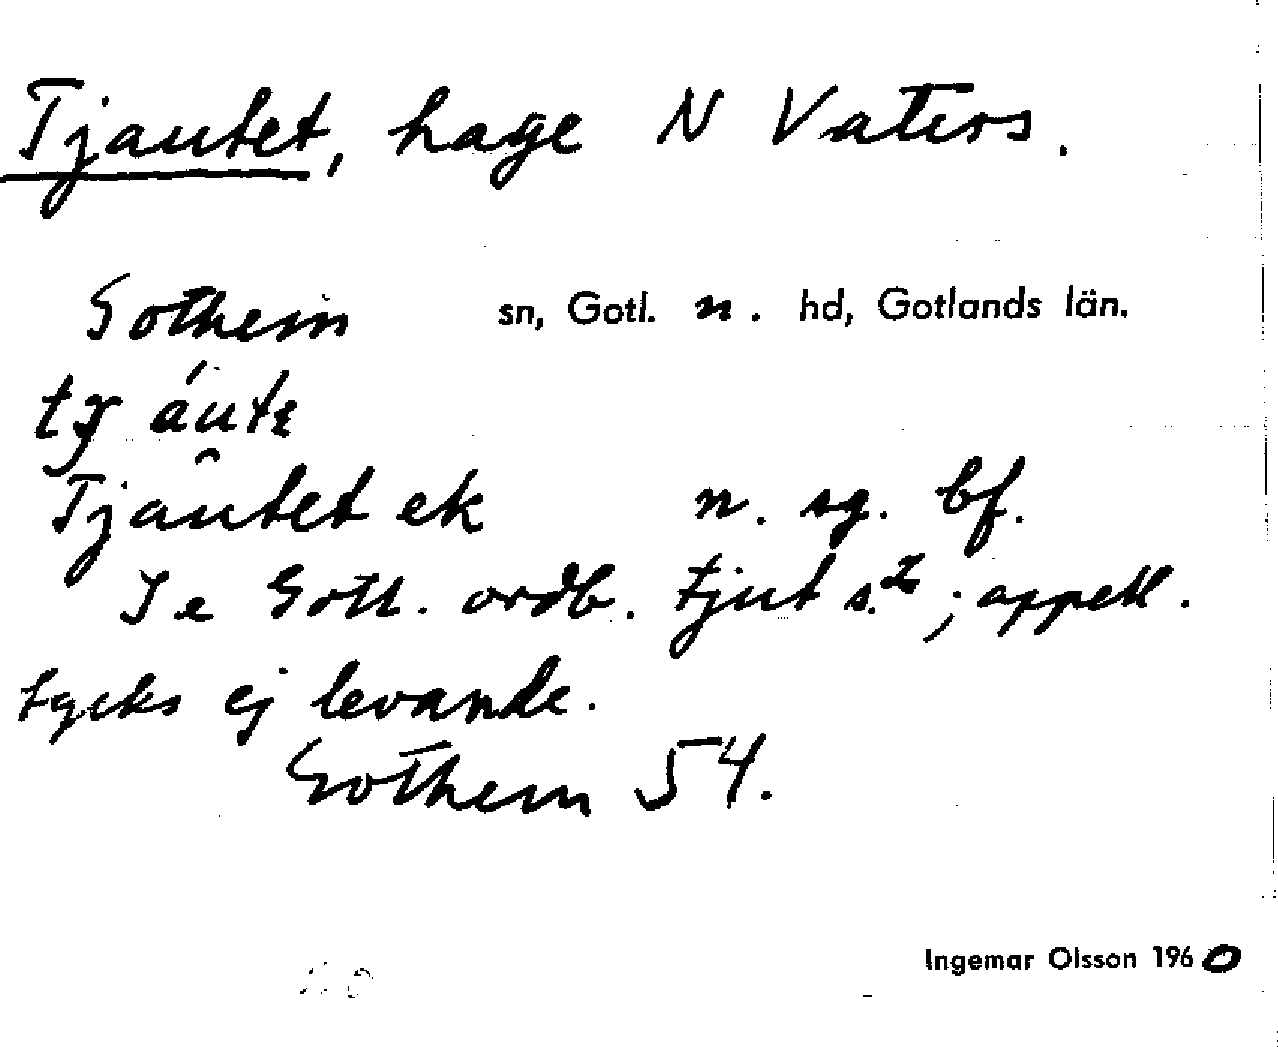 Tjautet, hage N Vaters.
Gothem sn, Gotl. n. hd, Gotlands län.
Tjautet ek n. sg. bf.
Se Gotl. ordb. tjut s.2; appell.
tycks ej levande.
Gothem 54.
Ingemar Olsson 1960